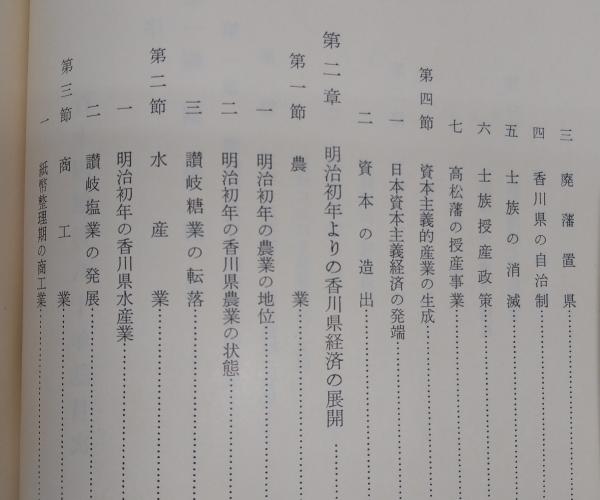 三 廃藩置県
四 香川県の自治制
五 士族の消滅
六 士族授産政策
七 高松藩の授産事業
第四節 資本主義的産業の生成
一 日本資本主義経済の発端
二 資本の造出
第二章 明治初年よりの香川県経済の展開
第一節 農業
一 明治初年の農業の地位
二 明治初年の香川県農業の状態
三 讃岐糖業の転落
第二節 水産業
一 明治初年の香川県水産業
二 讃岐塩業の発展
第三節 商工業
一 紙幣整理期の商工業